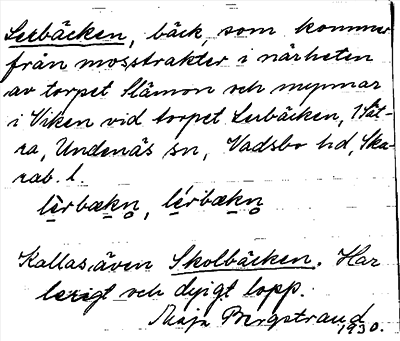 Lerbäcken, bäck, som kommer
från mosstrakter i närheten
av torpet Slämon och mynnar
i Viken vid torpet Lerbäcken, 1 Sät-
ra, Undenäs sn, Vadsbo hd, Ska-
rab. l.
lèrbækn̥, lérbækn̥
Kallas även Skolbäcken. Har
lerigt och dyigt lopp.
Maja Bergstrand
1930.